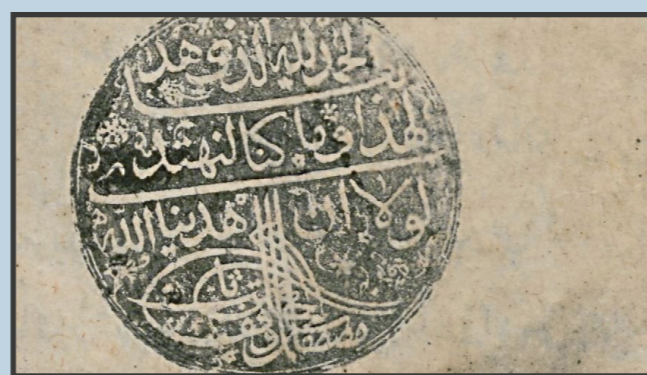 الحمد لله الذى هدينا
لهذا وما كنا لنهتدى
لولا ان هدينا الله
مصطفى